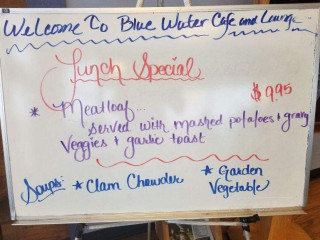 Welcome To Blue Water Cafe and Lounge
Lunch Special
$9.95
* Meatloaf...
served with mashed potatoes + gravy
Veggies + garlic toast
Soups: * Clam Chowder * Garden
Vegetable